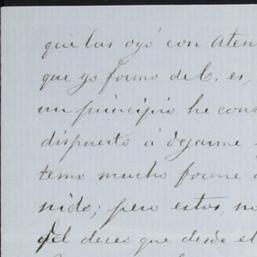 que las oyó con aten
que yo formo de V. es,
un principio he cons
dispuesto á dejarme
temo mucho forme
nido; pero estos, no
del deceo que desde el